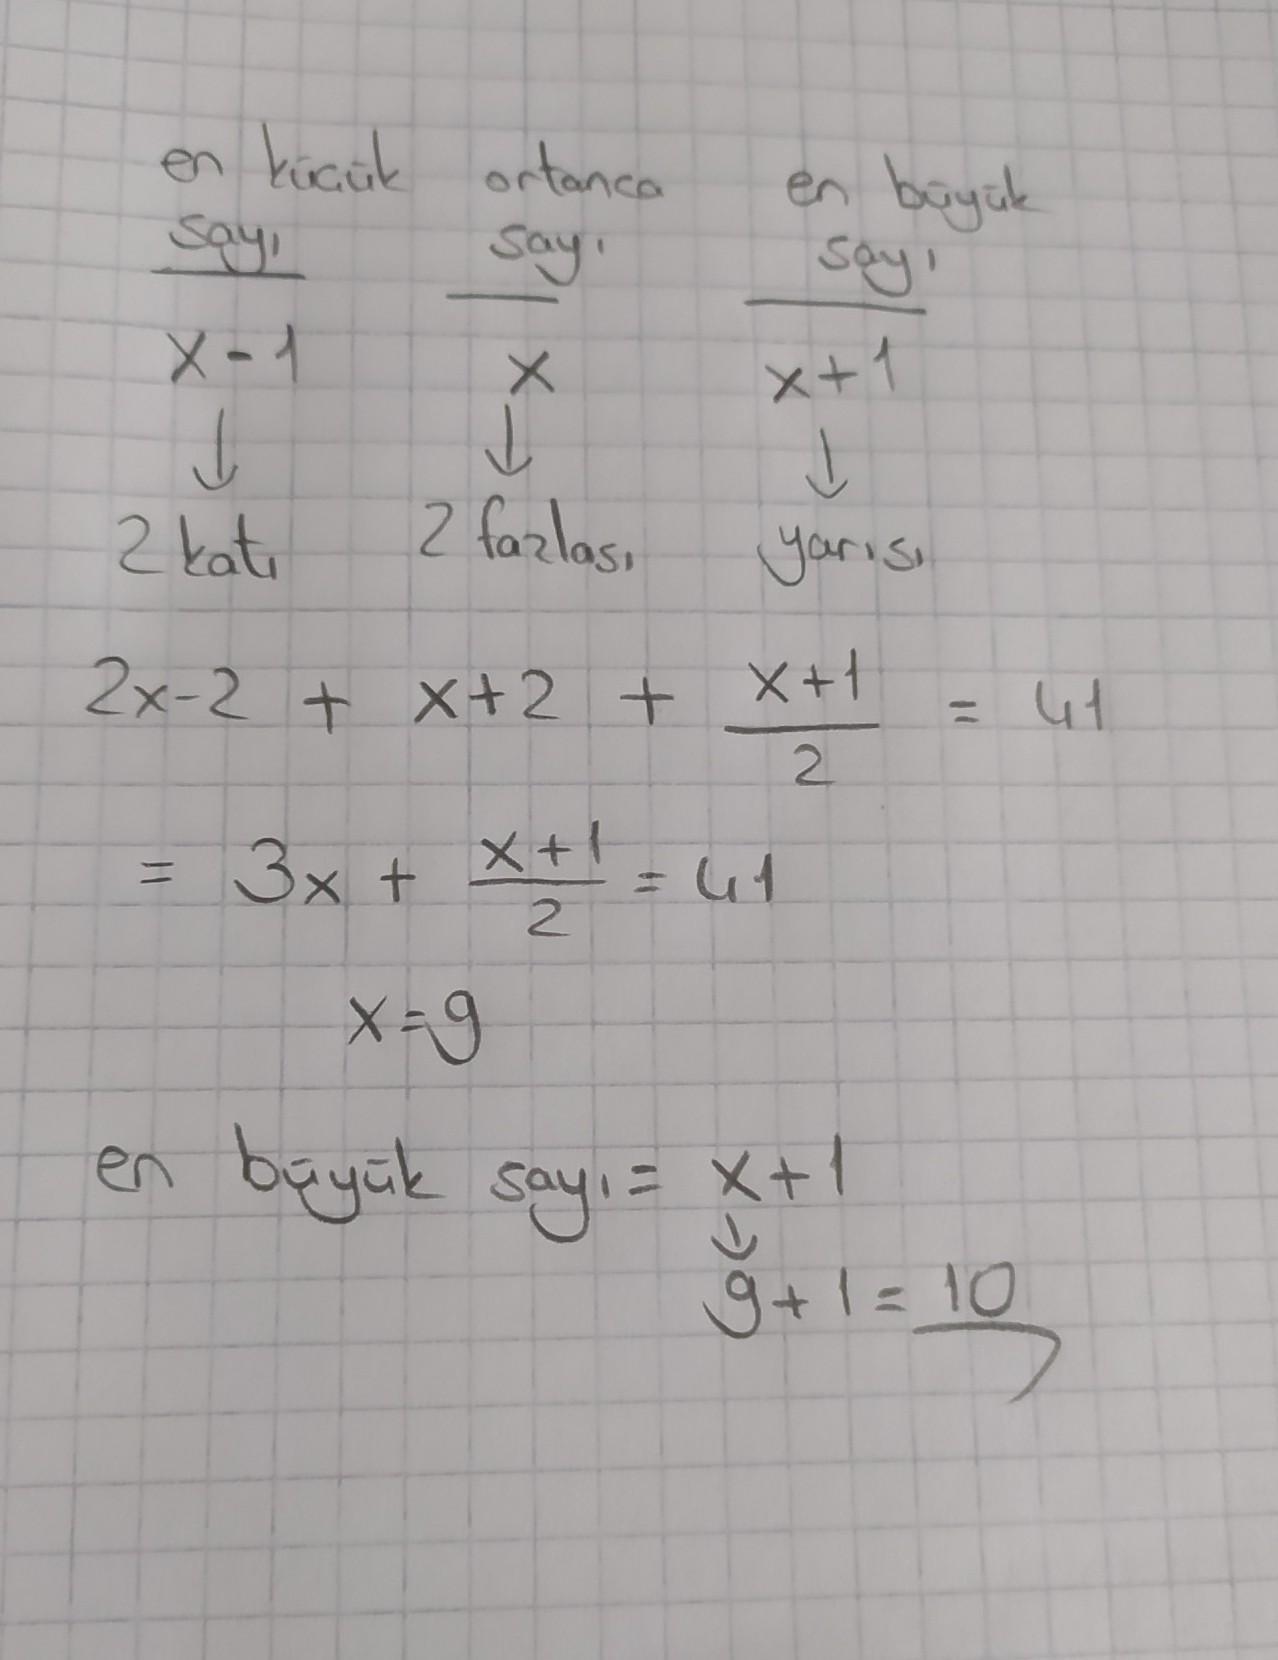 en küçük ortanca en büyük
sayı sayı sayı
x-1 x x+1
↓ ↓ ↓
2 katı 2 fazlası yarısı
2x-2 + x+2 + x+1/2 = 41
= 3x + x+1/2 = 41
x=9
en büyük sayı = x+1
↓
9+1=10